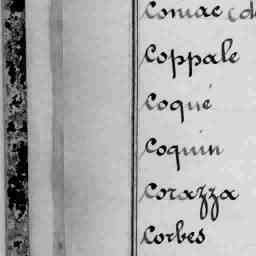 Coniac (d
Coppale
Coqué
Coquin
Corazza
Corbes